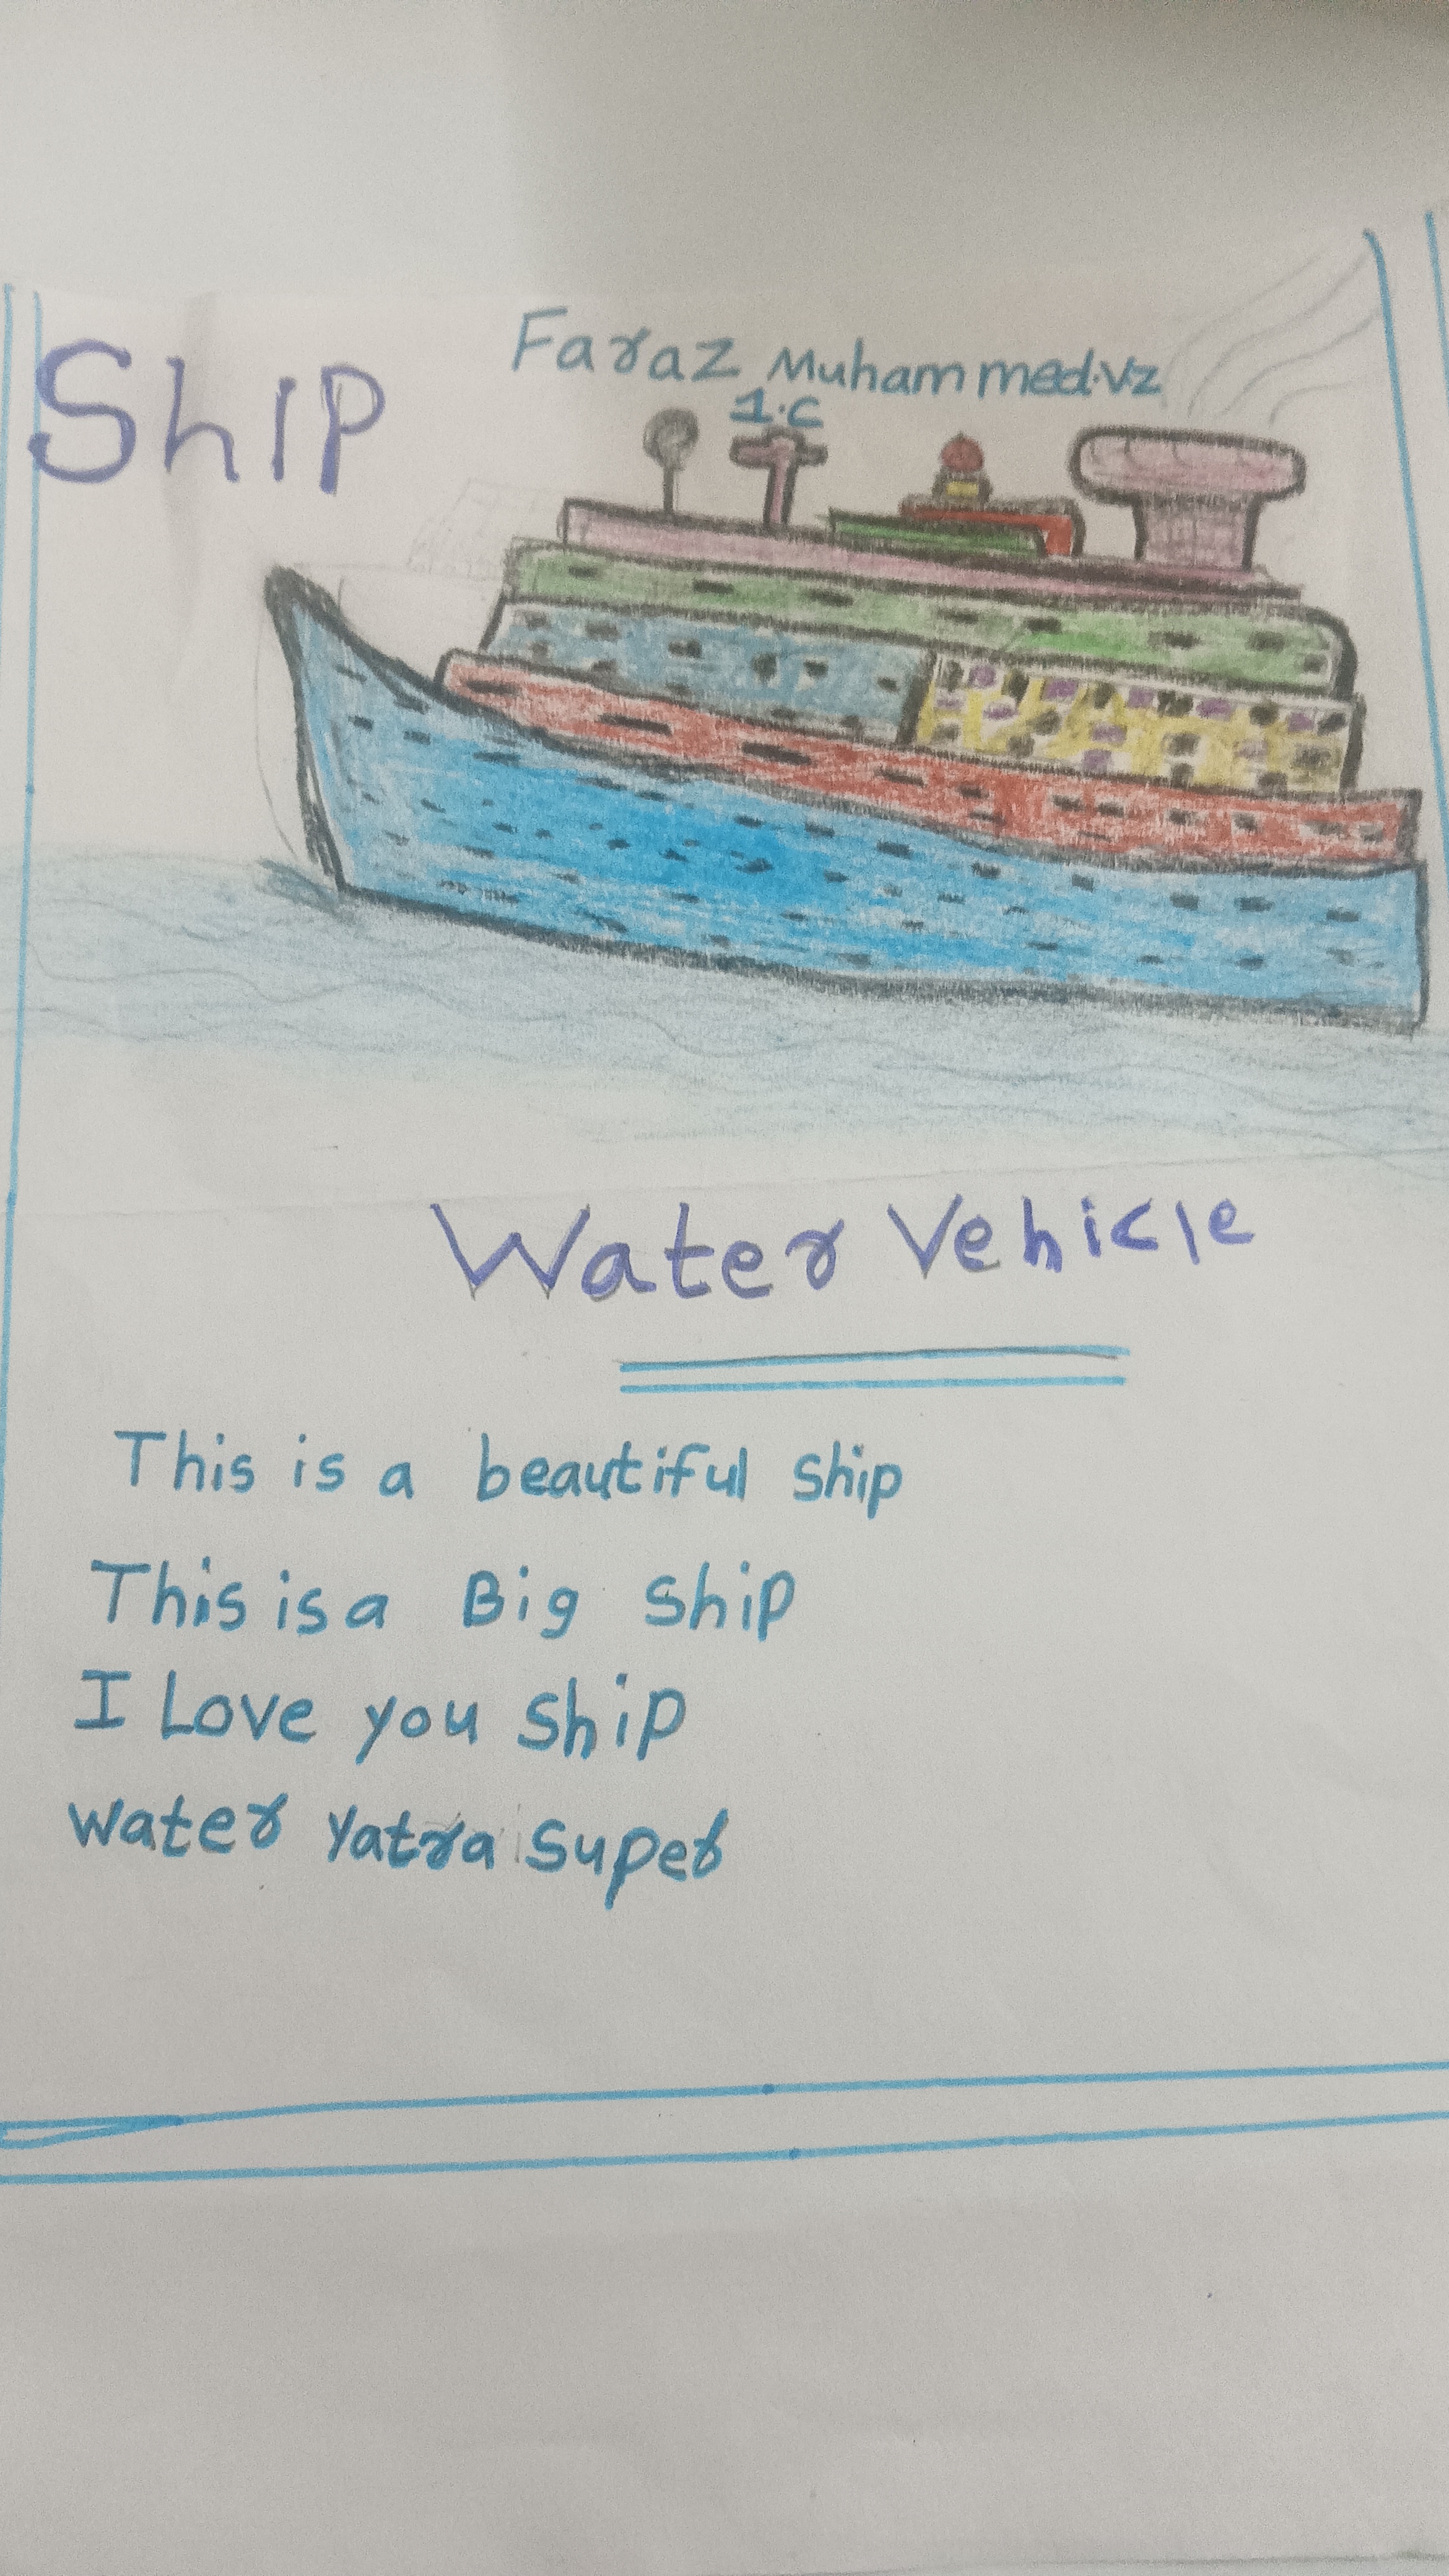 Ship
Faraz Muhammed.vz
1.C
Water Vehicle
This is a beautiful ship
This is a Big ship
I Love you ship
water yatra super